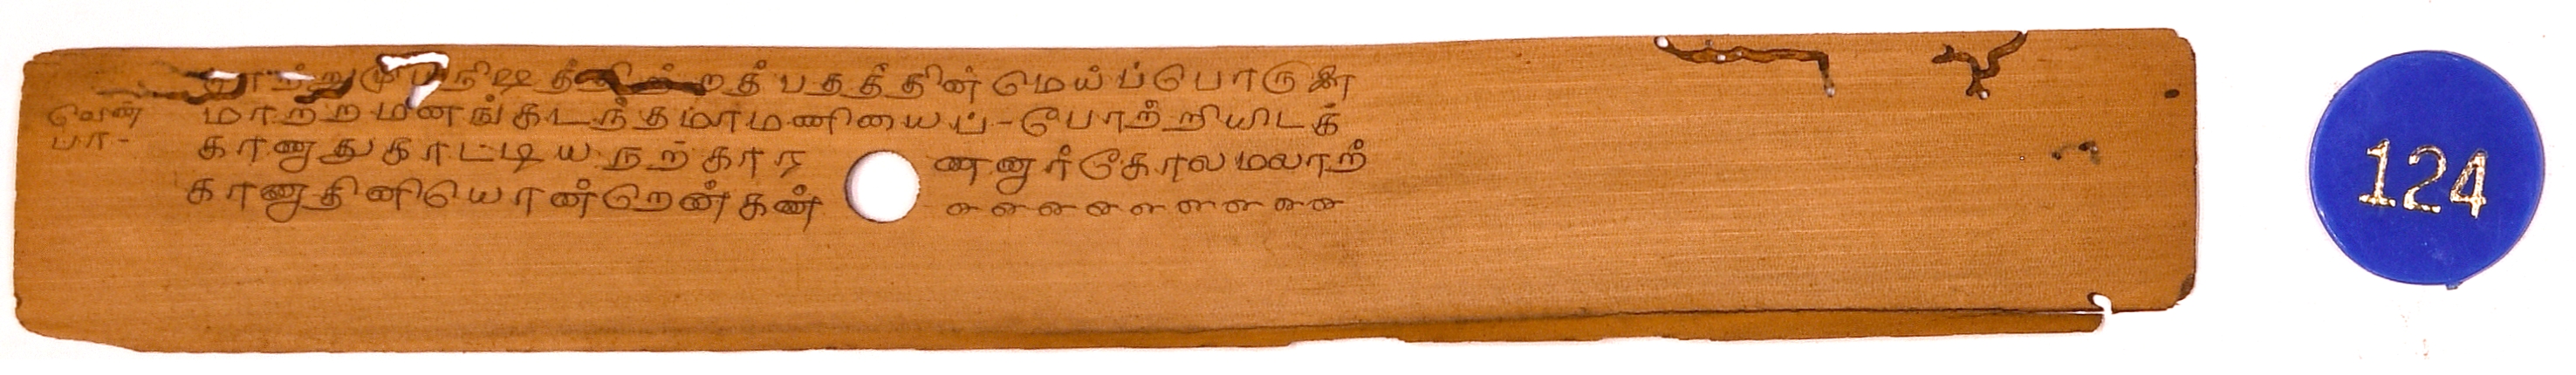 சாற்றுமுபநிஷத்தி ற்றத் பதத்தின் மெய்ப்பொருளை
வெண்பா- மாற்ற மனங்கடந்த மாமணியைப்-போற்றியிடக்
காணாதுகாட்டிய நற்கார ணனார்கோல மலாற்
காணாதினியொன்றென் கண்
124